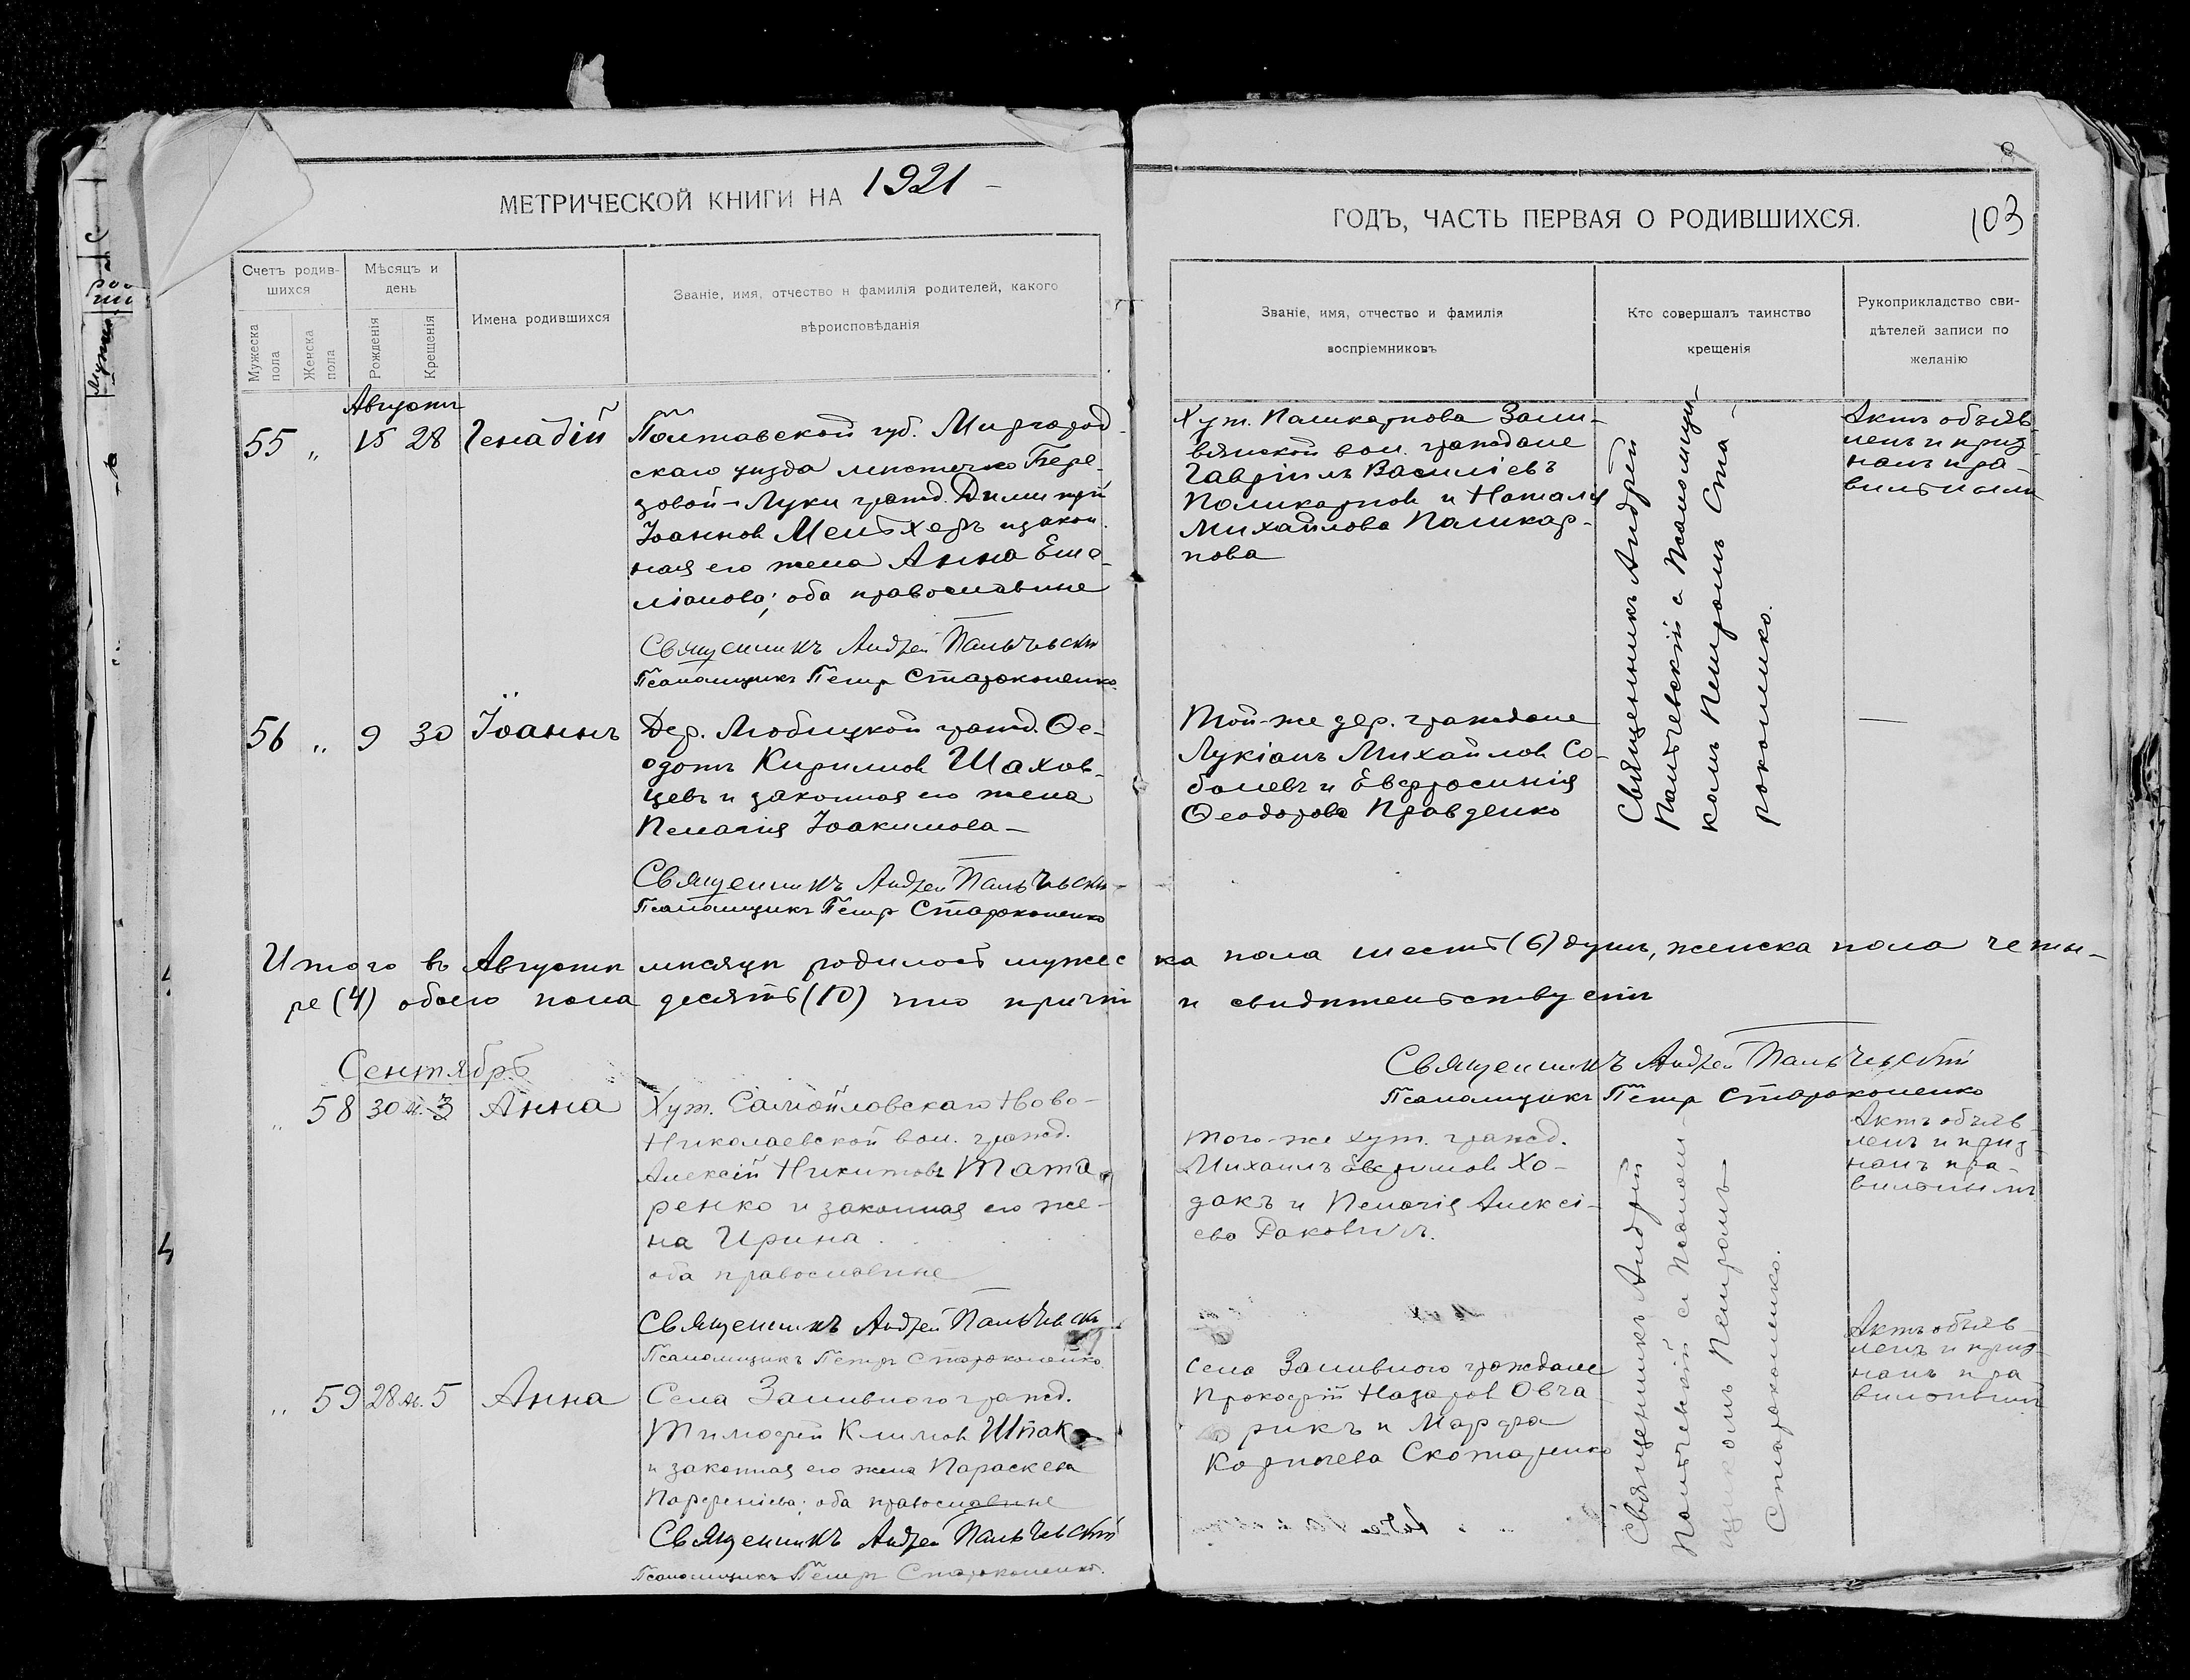 МЕТРИЧЕСКОЙ КНИГИ НА 1921
ГОДЪ, ЧАСТЬ ПЕРВАЯ О РОДИВШИХСЯ.
103
Счетъ родив-
шихся
Мужеска пола
Женска пола
Мѣсяцъ и
день
Рожденія
Крещенія
Имена родившихся
Званіе, имя, отчество и фамилія родителей, какого
вѣроисповѣданія
Званіе, имя, отчество и фамилія
воспріемниковъ
Кто совершалъ таинство
крещенія
Рукоприкладство сви-
дѣтелей записи по
желанію
Августъ
55 „ 15 28 Генадій
Полтавской губ. Миргород-
скаго уѣзда мѣстечко Бере-
зовой-Луки гражд. Димитрій
Іоаннов Мельхеръ и закон-
ная его жена Анна Еме-
ліанова; оба православные
Священникъ Андрей Пальчевскій
Псаломщикъ Петръ Староконенко
Хут. Паликарпова Зали-
вянской вол. граждане
Гавріилъ Василіевъ
Поликарпов и Наталія
Михайлова Паликар-
пова
Священникъ Андрей
Пальчевскій с Псаломщи-
комъ Петромъ Ста-
роконенко.
Актъ объяв-
ленъ и приз-
нанъ пра-
вильнымъ
56 „ 9 30 Іоаннъ
Дер. Любицкой гражд. Ѳе-
одотъ Кирилловъ Шахов-
цевъ и законная его жена
Пелагія Іоакимова —
Священникъ Андрей Пальчевскій
Псаломщикъ Петръ Староконенко
Той-же дер. граждане
Лукіанъ Михайлов Со-
болевъ и Евфросинія
Ѳеодорова Правденко
Итого въ Августѣ мѣсяцѣ родилось мужеска пола шесть (6) душъ, женска пола четы-
ре (4) обоего пола десять (10) что причтъ и свидѣтельствуетъ
Священникъ Андрей Пальчевскій
Псаломщикъ Петръ Староконенко
Сентябрь
„ 58 30 Ав. 3 Анна
Хут. Самойловскаго Ново-
Николаевской вол. гражд.
Алексій Никитовъ Тата-
ренко и законная его же-
на Ирина
оба православные
Священникъ Андрей Пальчевскій
Псаломщикъ Петръ Староконенко
того-же хут. гражд.
Михаилъ Хо-
дакъ и Пелагія Алексі-
ева
Священникъ Андрей
Пальчевскій с Псалом-
щикомъ Петромъ
Староконенко.
Актъ объяв-
ленъ и приз-
нанъ пра-
вильнымъ
„ 59 28 Ав. 5 Анна
Села Заливного гражд.
Тимофей Климов Шпак
и законная его жена Параскева
Парфеніева; оба православные
Священникъ Андрей Пальчевскій
Псаломщикъ Петръ Староконенко.
Села Заливного граждане
Прокофій Назаров Овча-
рикъ и Марфа
Корніева Скотаренко
Актъ объяв-
ленъ и приз-
нанъ пра-
вильнымъ